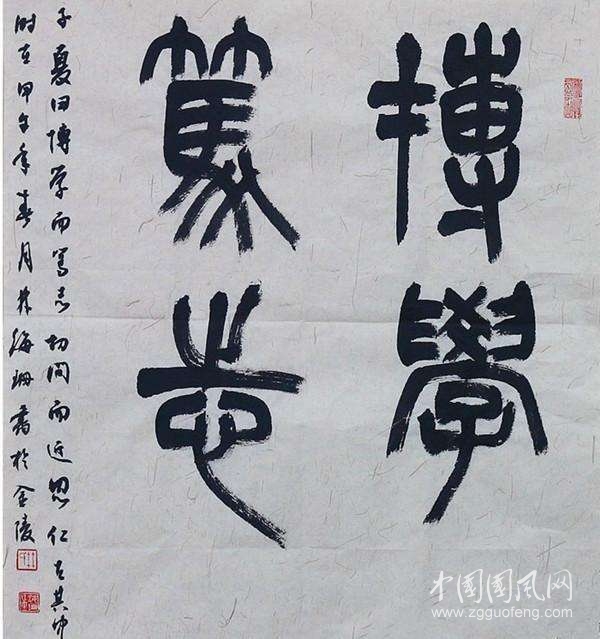 博學
篤志
子夏曰博学而笃志切问而近思仁在其中
时在甲午年春月林海珊书於金陵
中国国风网
www.zgguofeng.com